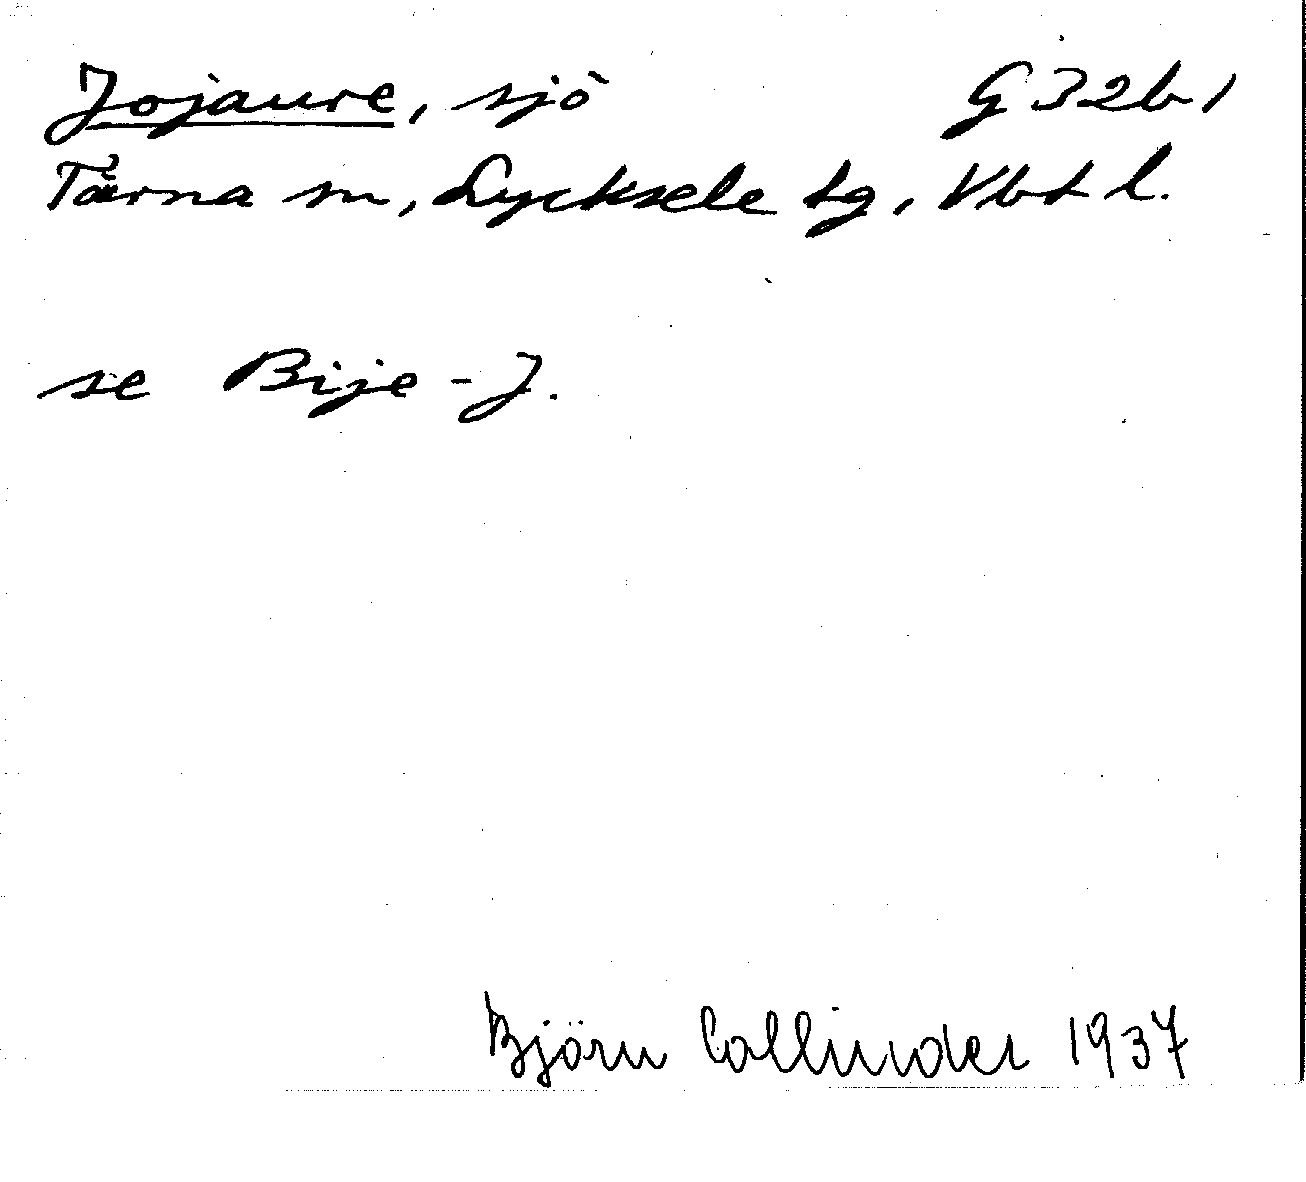 Jojaure, sjö G 32b1
Tärna sn, Lycksele lg, Vbt l.
se Bije-J.
Björn Collinder 1937